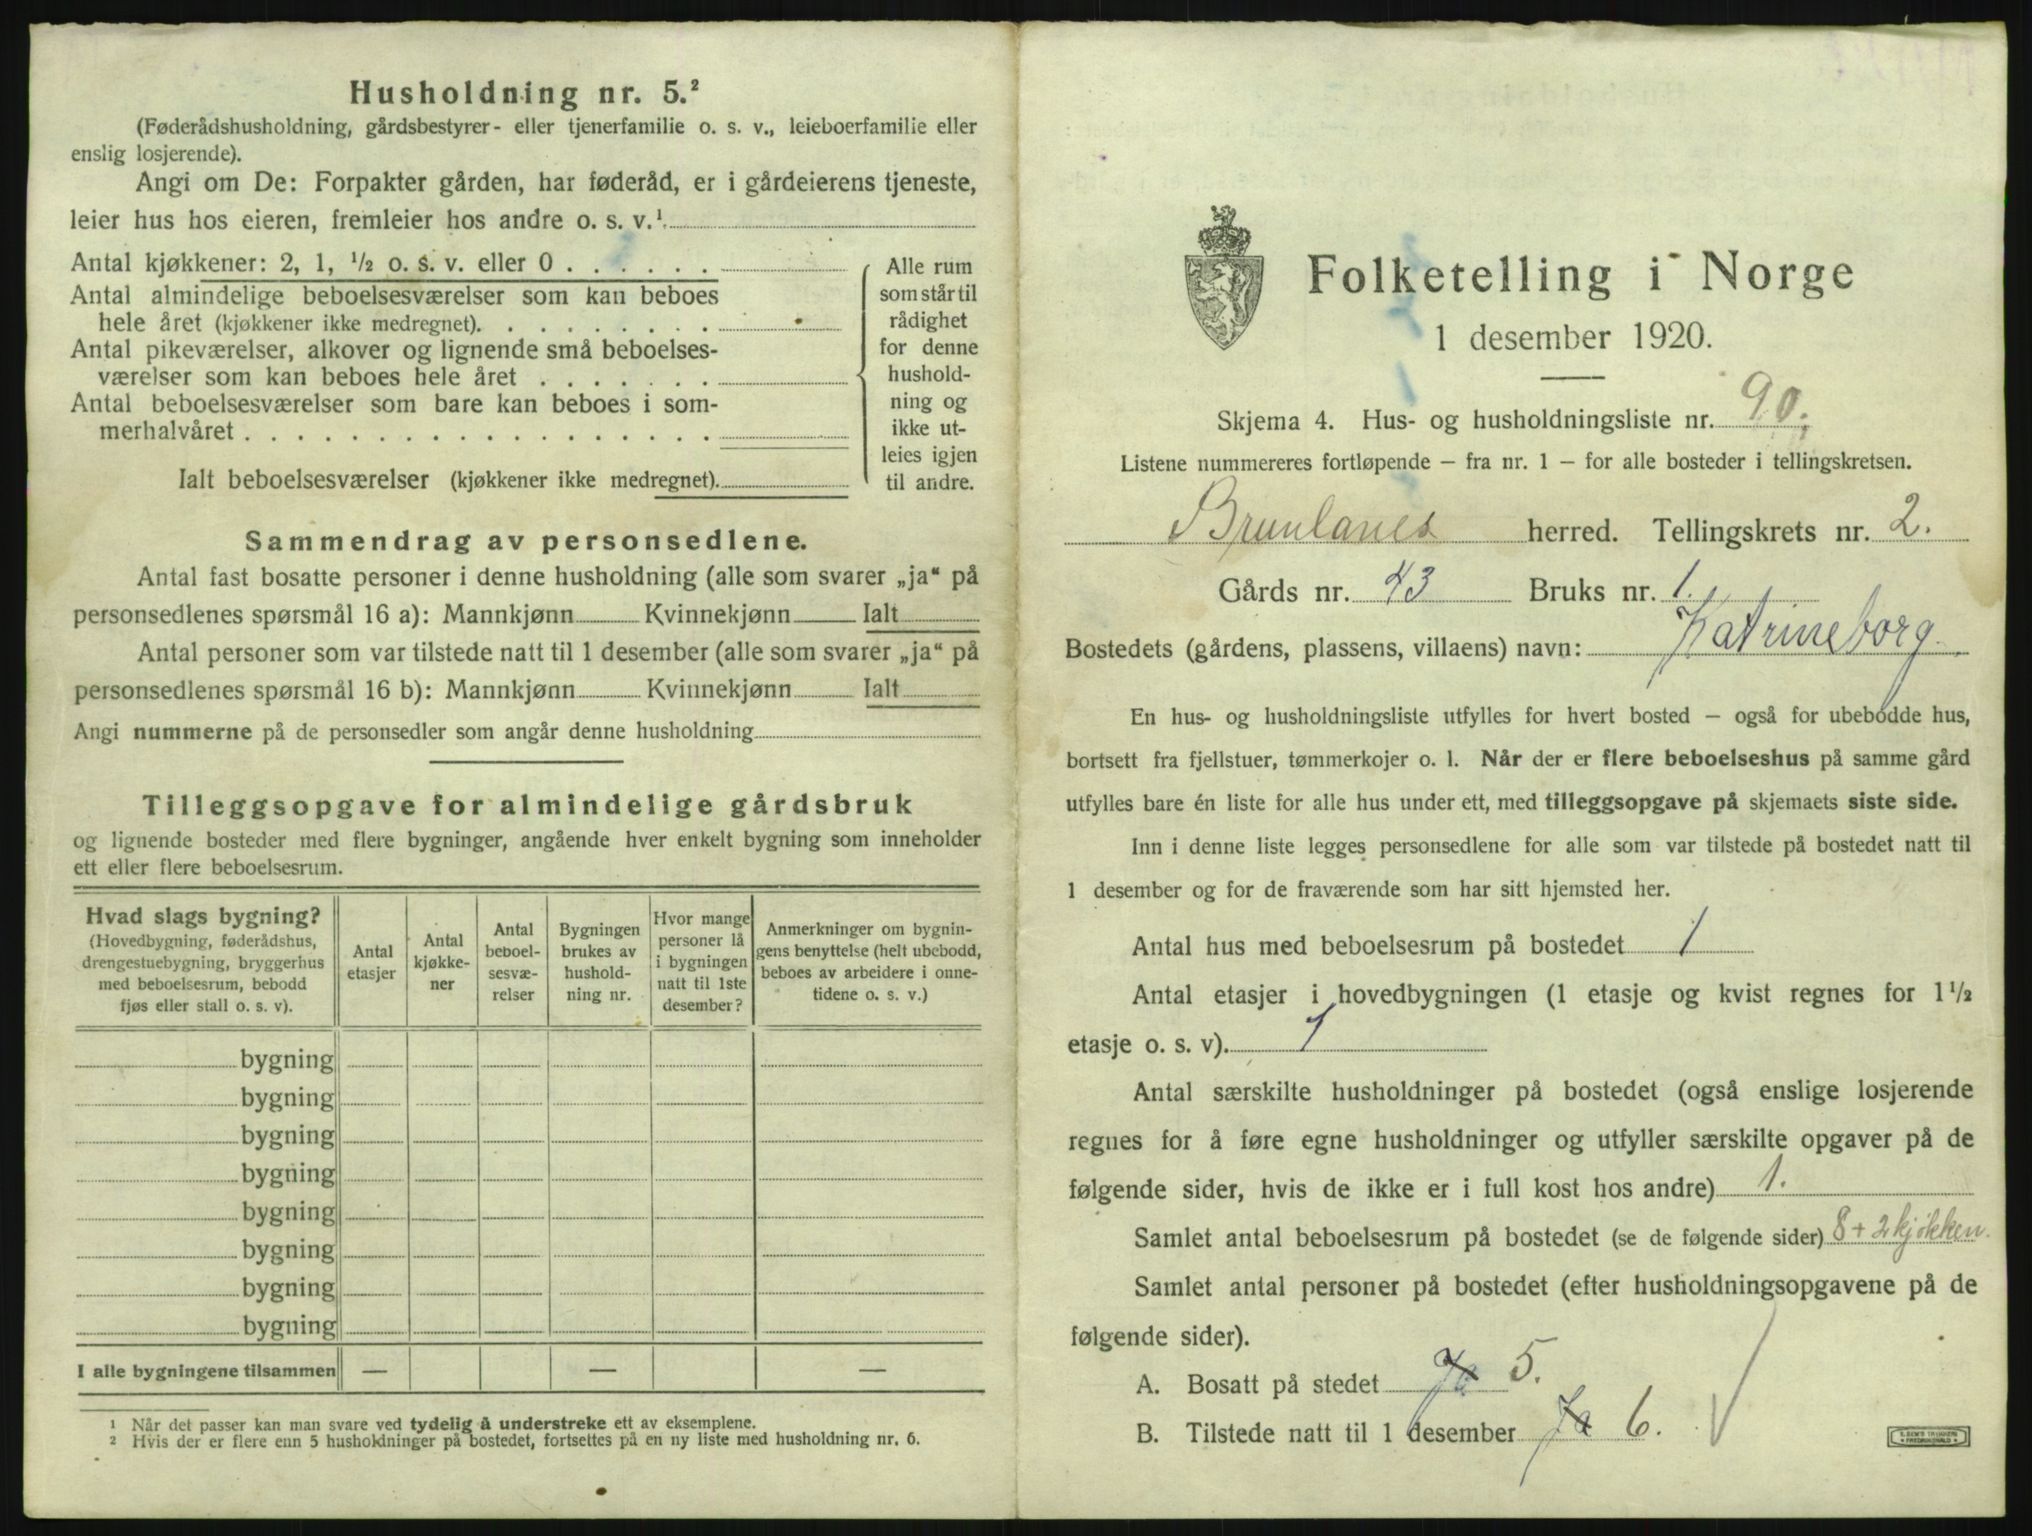 Husholdning nr. 5.²
(Føderådshusholdning, gårdsbestyrer- eller tjenerfamilie o. s. v., leieboerfamilie eller
enslig losjerende).
Angi om De: Forpakter gården, har føderåd, er i gårdeierens tjeneste,
leier hus hos eieren, fremleier hos andre o. s. v.¹
Antal kjøkkener: 2, 1, ½ o. s. v. eller 0 . . . . . .
Antal almindelige beboelsesværelser som kan beboes
hele året (kjøkkener ikke medregnet). . . . . . . . .
Antal pikeværelser, alkover og lignende små beboelses-
værelser som kan beboes hele året . . . . . . .
Antal beboelsesværelser som bare kan beboes i som-
merhalvåret . . . . . . . . . . . . . . . . . .
Ialt beboelsesværelser (kjøkkener ikke medregnet).
Alle rum
som står til
rådighet
for denne
hushold-
ning og
ikke ut-
leies igjen
til andre.
Sammendrag av personsedlene.
Antal fast bosatte personer i denne husholdning (alle som svarer „ja“ på
personsedlenes spørsmål 16 a): Mannkjønn Kvinnekjønn Ialt
Antal personer som var tilstede natt til 1 desember (alle som svarer „ja“ på
personsedlenes spørsmål 16 b): Mannkjønn Kvinnekjønn Ialt
Angi nummerne på de personsedler som angår denne husholdning
Tilleggsopgave for almindelige gårdsbruk
og lignende bosteder med flere bygninger, angående hver enkelt bygning som inneholder
ett eller flere beboelsesrum.
Hvad slags bygning?
(Hovedbygning, føderådshus,
drengestuebygning, bryggerhus
med beboelsesrum, bebodd
fjøs eller stall o. s. v).
Antal
etasjer
Antal
kjøkke-
ner
Antal
beboel-
sesvæ-
relser
Bygningen
brukes av
hushold-
ning nr.
Hvor mange
personer lå
i bygningen
natt til 1ste
desember?
Anmerkninger om bygnin-
gens benyttelse (helt ubebodd,
beboes av arbeidere i onne-
tidene o. s. v.)
bygning
bygning
bygning
bygning
bygning
bygning
bygning
bygning
I alle bygningene tilsammen — — —
¹ Når det passer kan man svare ved tydelig å understreke ett av eksemplene.
² Hvis der er flere enn 5 husholdninger på bostedet, fortsettes på en ny liste med husholdning nr. 6.
Folketelling i Norge
1 desember 1920.
Skjema 4. Hus- og husholdningsliste nr. 90.
Listene nummereres fortløpende – fra nr. 1 – for alle bosteder i tellingskretsen.
Brunlanes herred. Tellingskrets nr. 2.
Gårds nr. 43 Bruks nr. 1.
Bostedets (gårdens, plassens, villaens) navn: Katrineborg.
En hus- og husholdningsliste utfylles for hvert bosted – også for ubebodde hus,
bortsett fra fjellstuer, tømmerkojer o. l. Når der er flere beboelseshus på samme gård
utfylles bare én liste for alle hus under ett, med tilleggsopgave på skjemaets siste side.
Inn i denne liste legges personsedlene for alle som var tilstede på bostedet natt til
1 desember og for de fraværende som har sitt hjemsted her.
Antal hus med beboelsesrum på bostedet 1
Antal etasjer i hovedbygningen (1 etasje og kvist regnes for 1½
etasje o. s. v). 1
Antal særskilte husholdninger på bostedet (også enslige losjerende
regnes for å føre egne husholdninger og utfyller særskilte opgaver på de
følgende sider, hvis de ikke er i full kost hos andre) 1.
Samlet antal beboelsesrum på bostedet (se de følgende sider) 8 + 2 kjøkken.
Samlet antal personer på bostedet (efter husholdningsopgavene på de
følgende sider).
A. Bosatt på stedet Ja 5.
B. Tilstede natt til 1 desember Ja 6.